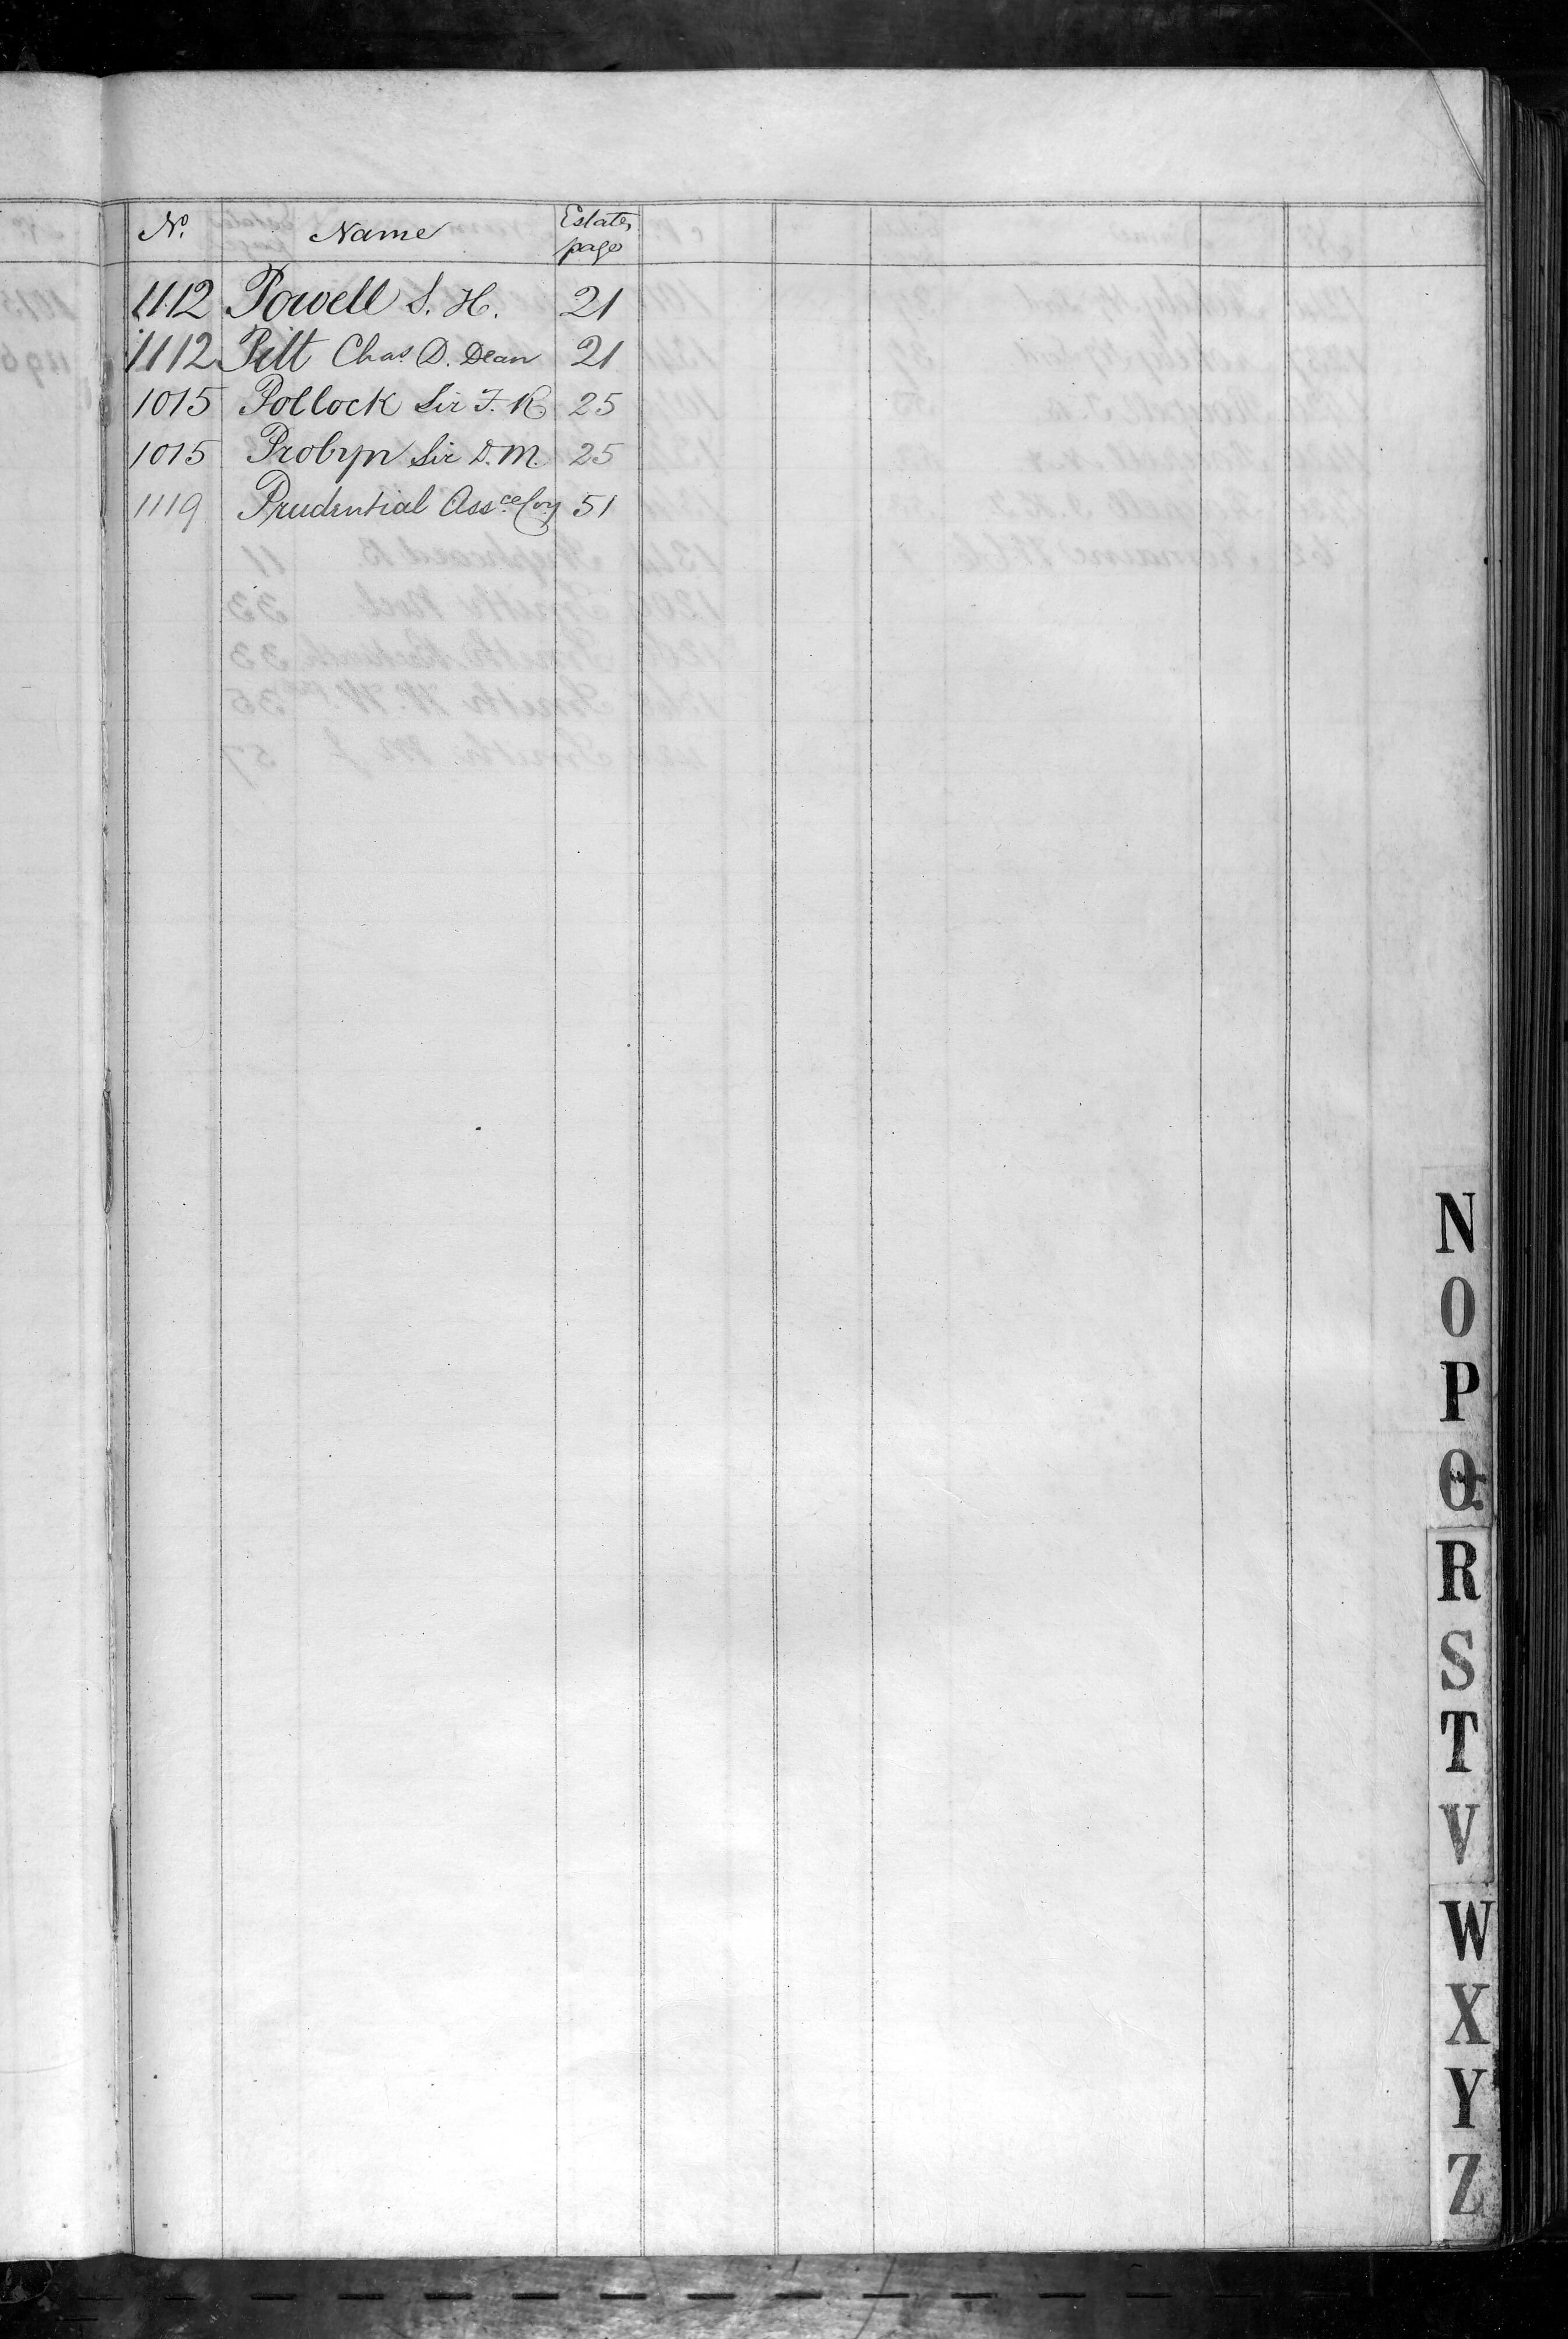 No. Name Estates page
1112 Powell S. H. 21
1112 Pitt Chas. D. Dean 21
1015 Pollock Sir F. R 25
1015 Probyn Sir D. M. 25
1119 Prudential Assce. Coy 51
N
O
P
Q
R
S
T
V
W
X
Y
Z